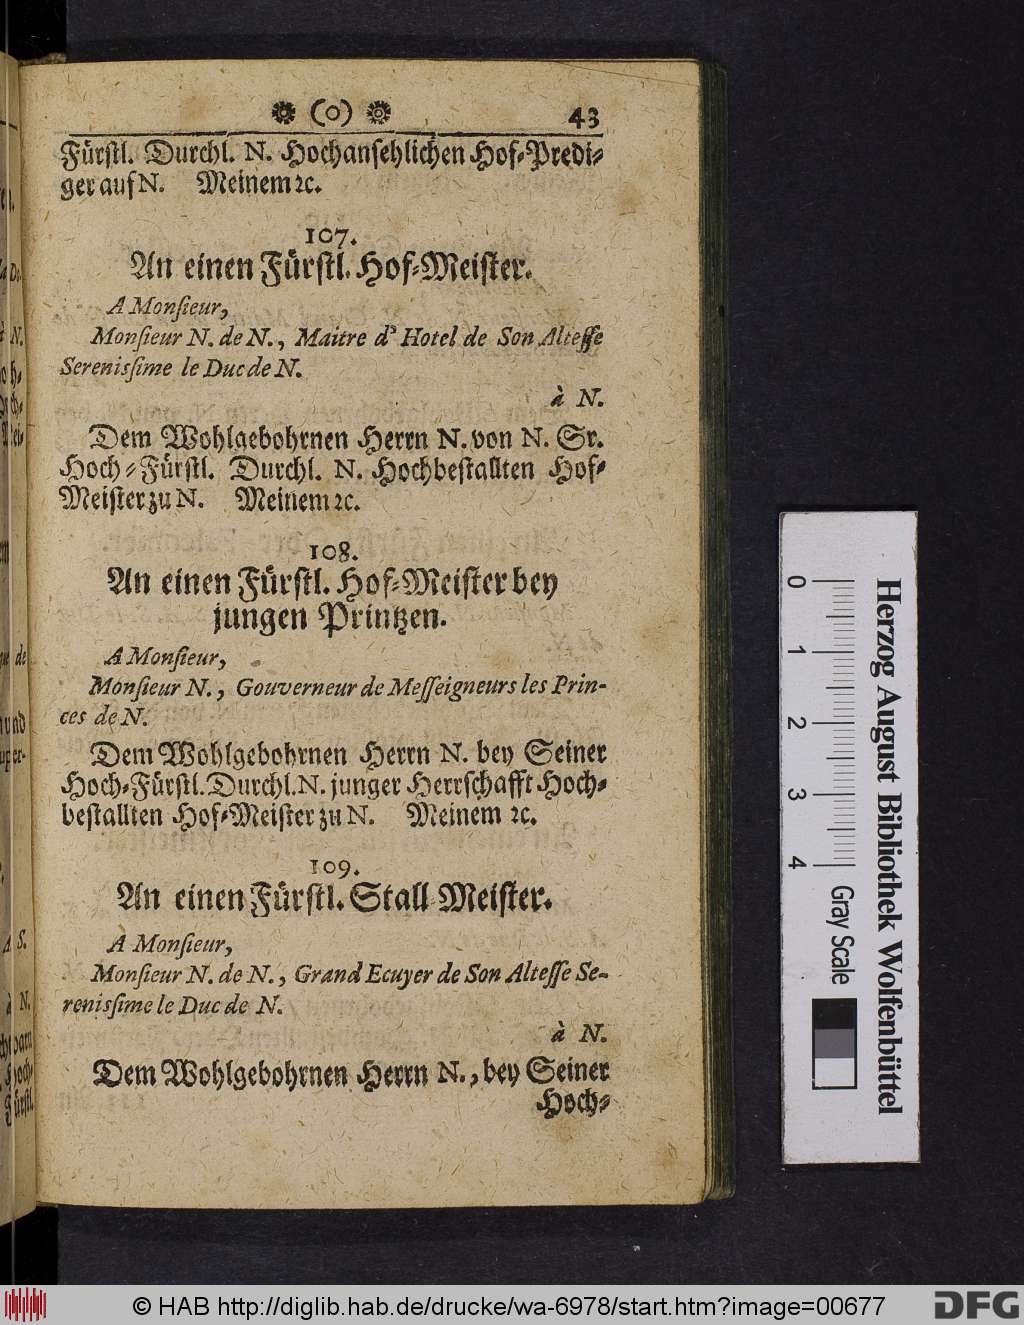 (o) 43
Fürſtl. Durchl. N. Hochanſehlichen Hof-Predi-
ger auf N. Meinem ꝛc.
107.
An einen Fürſtl. Hof-Meiſter.
A Monſieur,
Monſieur N. de N., Maitre d' Hotel de Son Alteſſe
Sereniſsime le Duc de N.
à N.
Dem Wohlgebohrnen Herrn N. von N. Sr.
Hoch-Fürſtl. Durchl. N. Hochbeſtallten Hof-
Meiſter zu N. Meinem ꝛc.
108.
An einen Fürſtl. Hof-Meiſter bey
jungen Printzen.
A Monſieur,
Monſieur N., Gouverneur de Meſſeigneurs les Prin-
ces de N.
Dem Wohlgebohrnen Herrn N. bey Seiner
Hoch-Fürſtl. Durchl. N. junger Herrſchafft Hoch-
beſtallten Hof-Meiſter zu N. Meinem ꝛc.
109.
An einen Fürſtl. Stall-Meiſter.
A Monſieur,
Monſieur N. de N., Grand Ecuyer de Son Alteſſe Se-
reniſsime le Duc de N.
à N.
Dem Wohlgebohrnen Herrn N., bey Seiner
Hoch-
0 1 2 3 4
Gray Scale
Herzog August Bibliothek Wolfenbüttel
© HAB http://diglib.hab.de/drucke/wa-6978/start.htm?image=00677
DFG